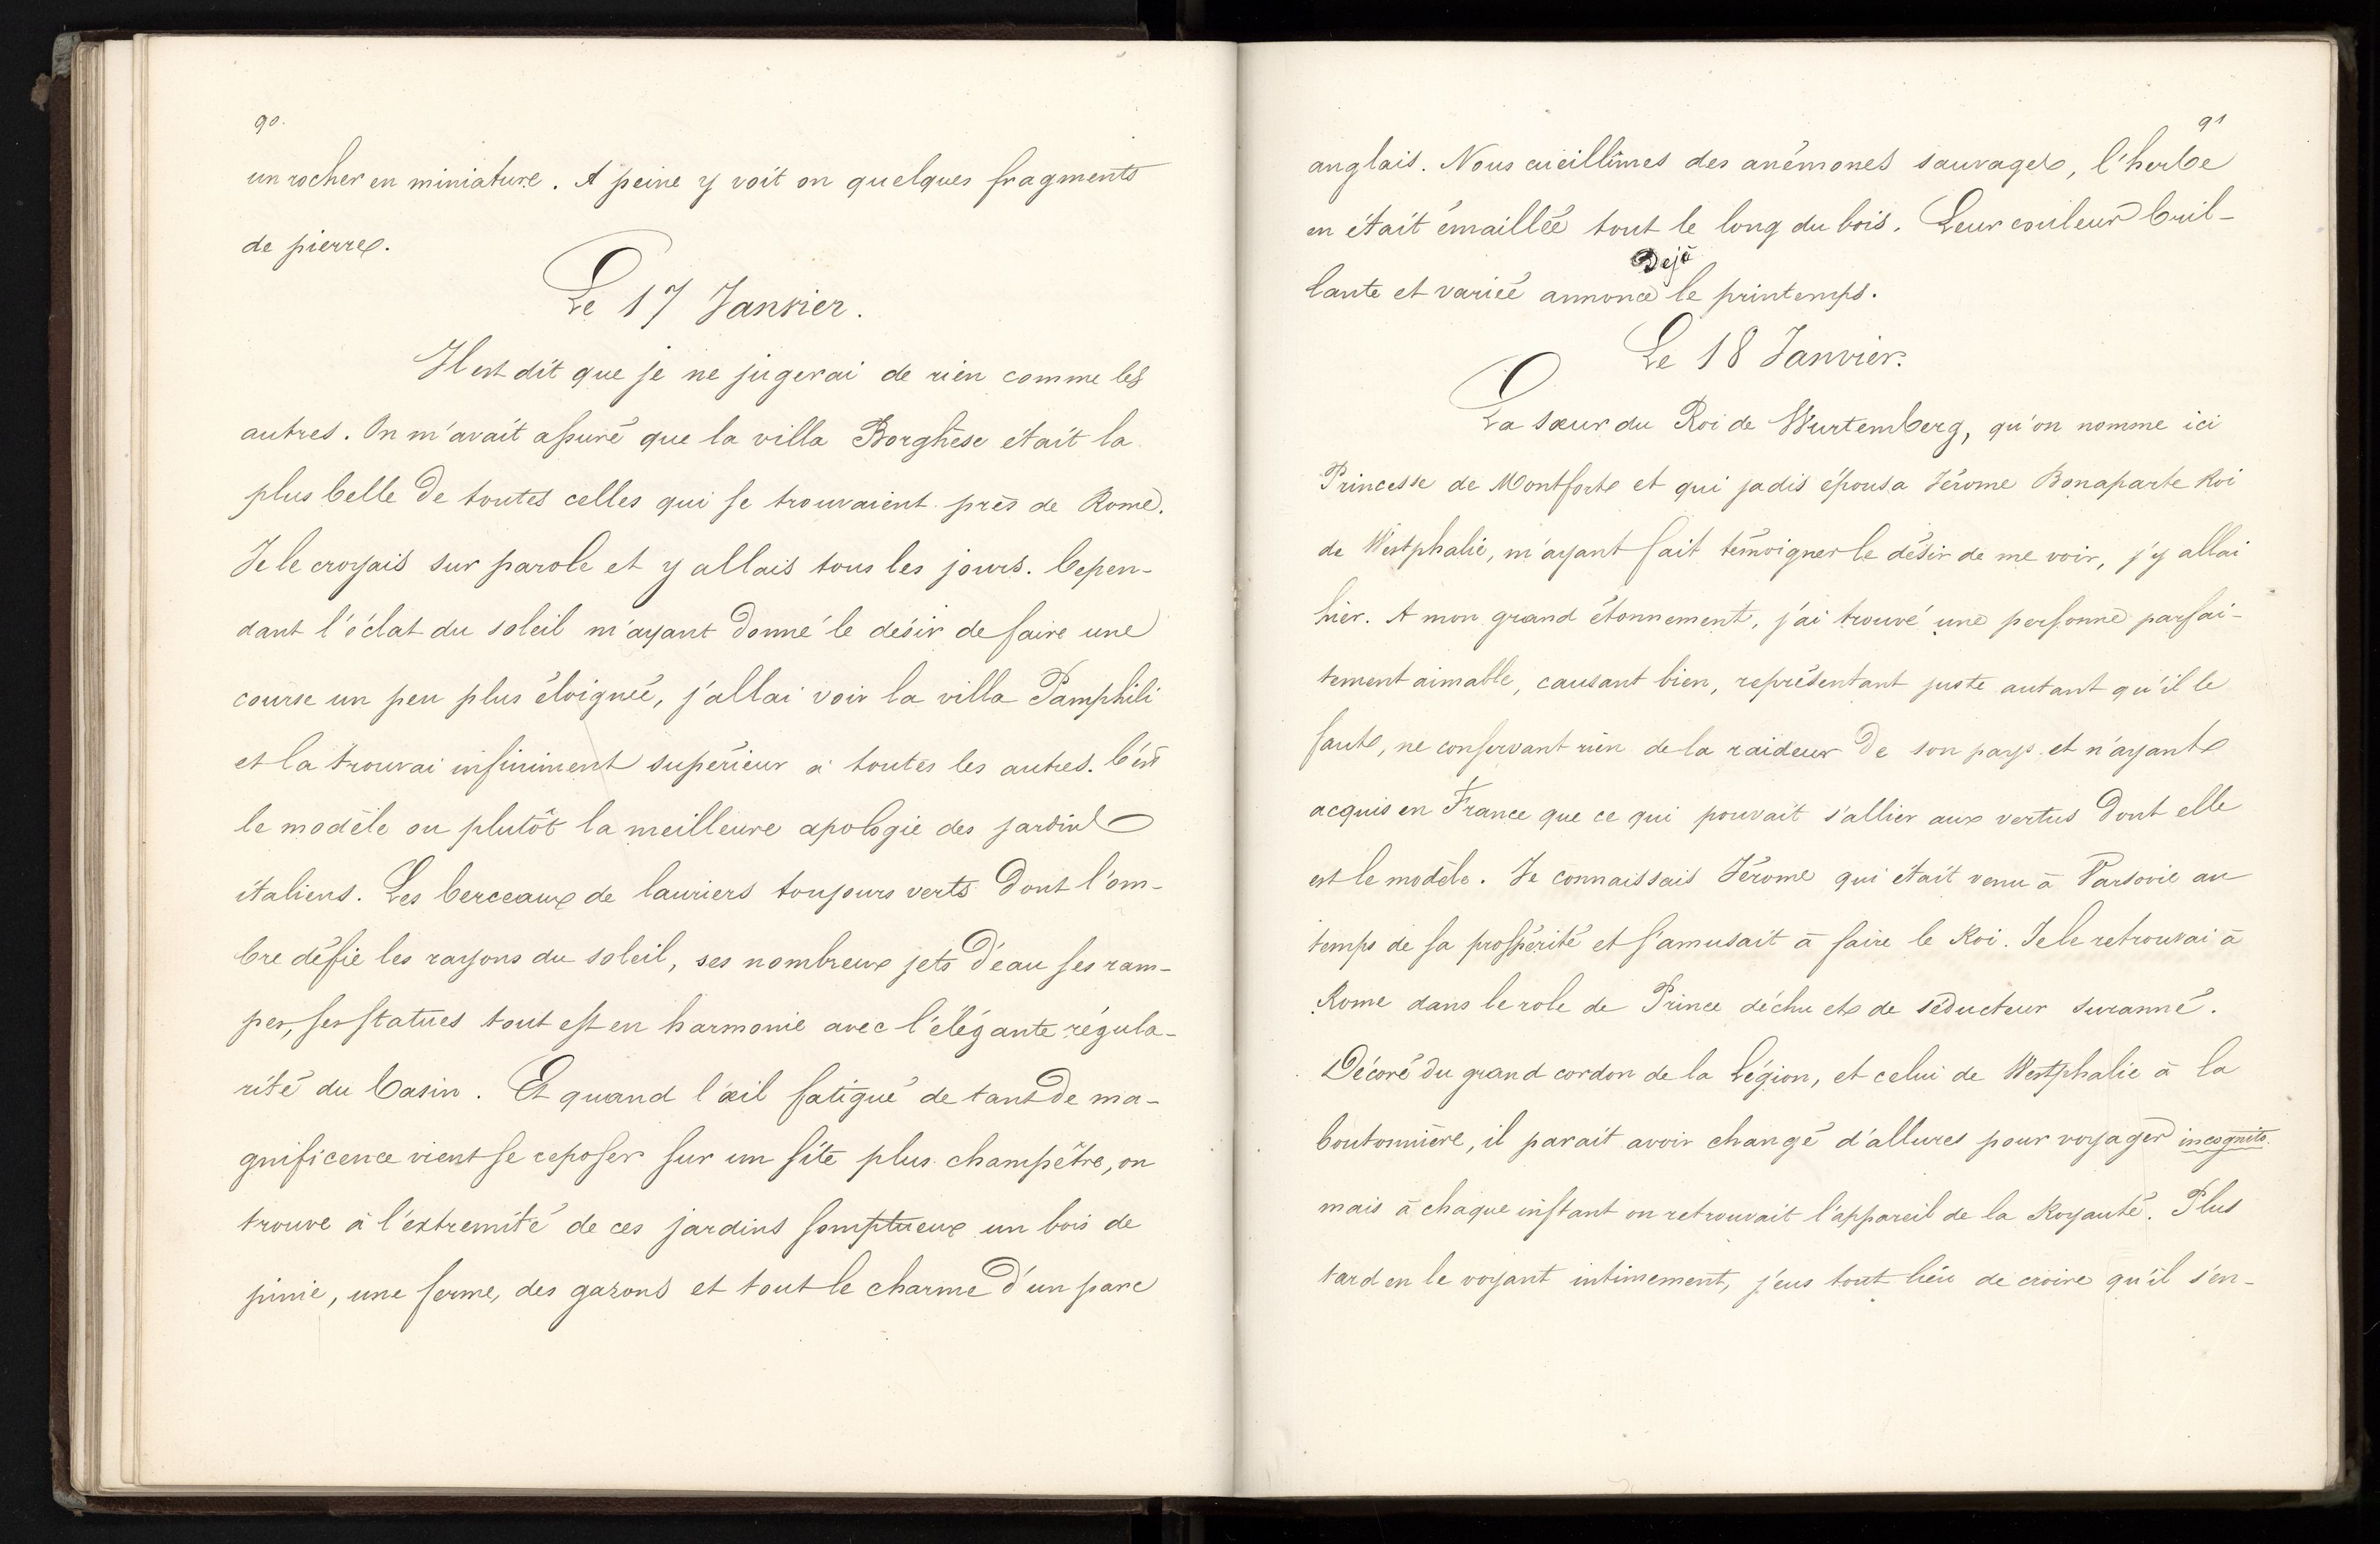 90.
un rocher en miniature. A peine y voit on quelques fragments
de pierre.
Le 17 Janvier.
Il est dit que je ne jugerai de rien comme les
autres. On m'avait assuré que la villa Borghèse était la
plus belle de toutes celles qui se trouvaient près de Rome.
Je le croyais sur parole et y allais tous les jours. Cepen-
dant l'éclat du soleil m'ayant donné le désir de faire une
course un peu plus éloignée, j'allai voir la villa Pamphili
et la trouvai infiniment supérieur à toutes les autres. C'est
le modèle ou plutôt la meilleure apologie des jardins
italiens. Les berceaux de lauriers toujours verts dont l'om-
bre défie les rayons du soleil, ses nombreux jets d'eau ses ram-
pes, ses statues tout est en harmonie avec l'élégante régula-
rité du Casin. Et quand l'œil fatigué de tant de ma-
gnificence vient se reposer sur un site plus champêtre, on
trouve à l'extremité de ces jardins somptueux un bois de
pinie, une ferme, des gazons et tout le charme d'un parc
91
anglais. Nous cueillîmes des anémones sauvages, l'herbe
en était émaillée tout le long du bois. Leur couleur bril-
Dejà
lante et variée annonce le printemps.
Le 18 Janvier.
La sœur du Roi de Wurtemberg, qu'on nomme ici
Princesse de Montfort et qui jadis épousa Jérome Bonaparte Roi
de Westphalie, m'ayant fait témoigner le désir de me voir, j'y allai
hier. A mon grand étonnement, j'ai trouvé une personne parfai-
tement aimable, causant bien, représentant juste autant qu'il le
faut, ne conservant rien de la raideur de son pays et n'ayant
acquis en France que ce qui pouvait s'allier aux vertus dont elle
est le modèle. Je connaissais Jérome qui était venu à Varsovie au
temps de sa prospérité et s'amusait à faire le Roi. Je le retrouvai à
Rome dans le role de Prince déchu et de séducteur suranné.
Décoré du grand cordon de la Légion, et celui de Westphalie à la
boutonnière, il parait avoir changé d'allures pour voyager incognito.
mais à chaque instant on retrouvait l'appareil de la Royauté. Plus
tard en le voyant intimement, j'eus tout lieu de croire qu'il s'en-